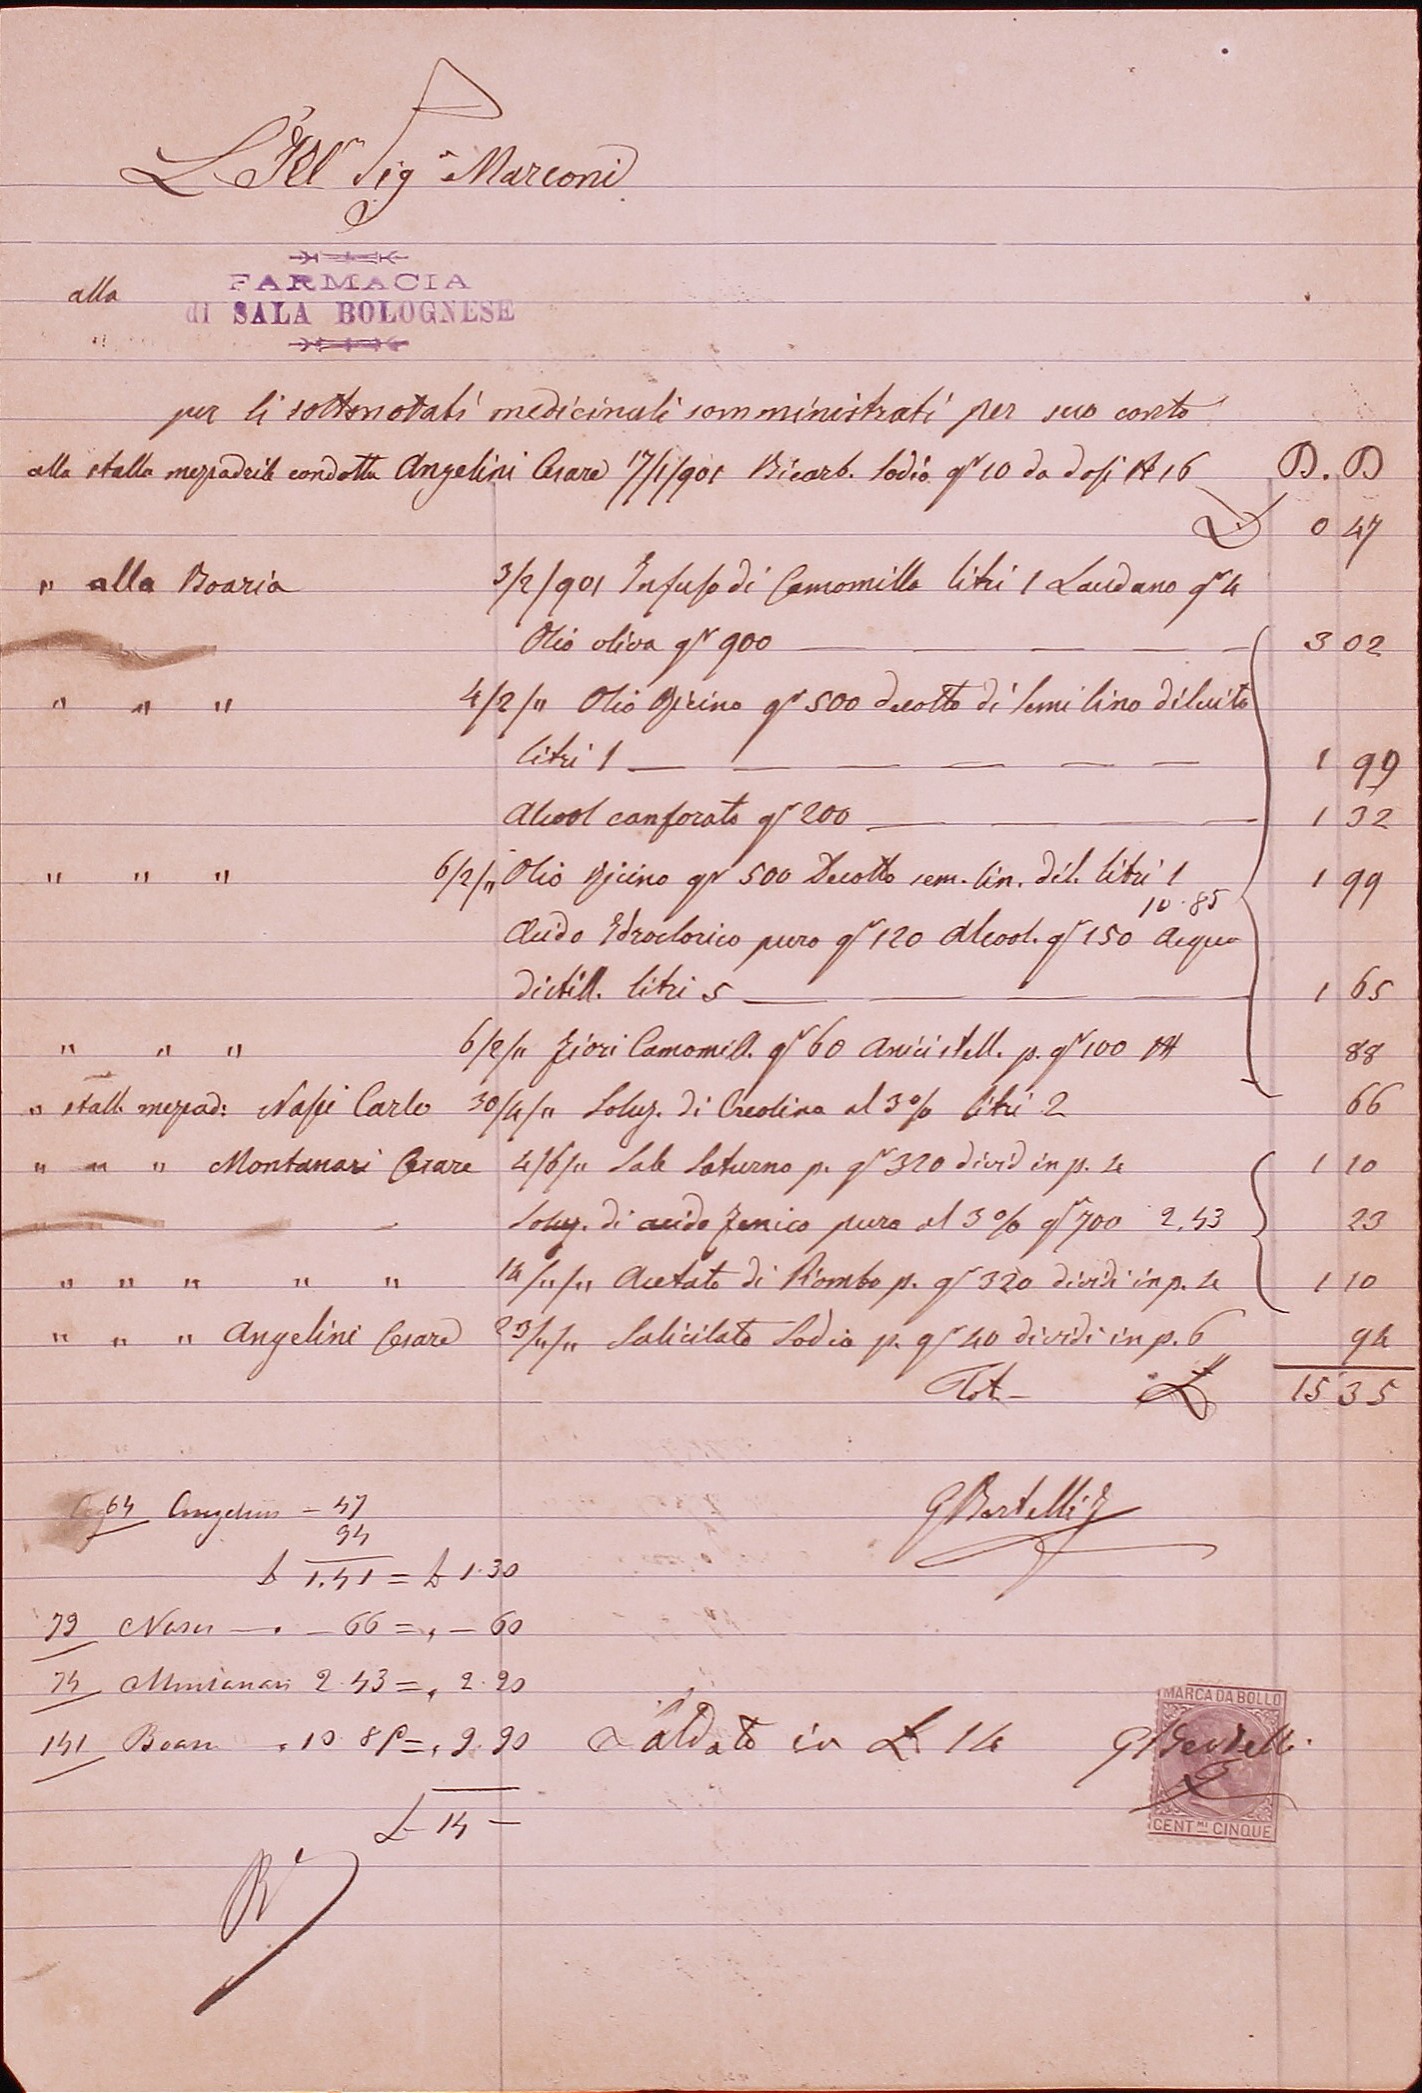 L'Ill Sig Marconi
alla FARMACIA
di SALA BOLOGNESE
per li sottonotati medicinali somministrati per suo conto
alla stalla mezzadrile condotta Angelini Cesare 17/1/901 Bicarb. Sodio gr 10 da dosi N 16 D. D
£ 0 47
" alla Boaria 3/2/901 Infuso di Camomilla litri 1 Laudano gr 4
Olio oliva gr 900 — — — — 3 02
" " " 4/2/" Olio Ricino gr 500 decotto di semi lino diluito
litri 1 — — — — — — 1 99
Alcool canforato gr 200 — — — 1 32
" " " 6/2/" Olio Ricino gr 500 Decotto sem. lin. dil. litri 1 1 99
10.85
Acido Idroclorico puro gr 120 Alcool. gr 150 Acqua
distill. litri 5 — — — — 1 65
" " " 6/2/" Fiori Camomill. gr 60 Anici stell. p. gr 100 88
" stall. mezzad: Nassi Carlo 30/4/" Soluz. di Creolina al 3% litri 2 66
" " " Montanari Cesare 4/6/" Sale Saturno p. gr 320 divid in p. 4 1 10
Soluz. di acido fenico puro al 3% gr 700 2.43 23
" " " " " 14/"/" Acetato di Piombo p. gr 320 dividi in p. 4 1 10
" " " Angelini Cesare 23/"/" Salicilato Sodio p. gr 40 dividi in p. 6 94
Tot— £ 15 35
64 Angelini — 47
94
£ 1.41 = £ 1.30
G Bertelli F
79 Nassi — . — 66 = " — 60
74 Montanari 2.43 = " 2.20
141 Boari " 10 85 = " 9.90
Saldato in £ 14 G Bertelli
£ 14 —
MARCA DA BOLLO
CENTMI CINQUE